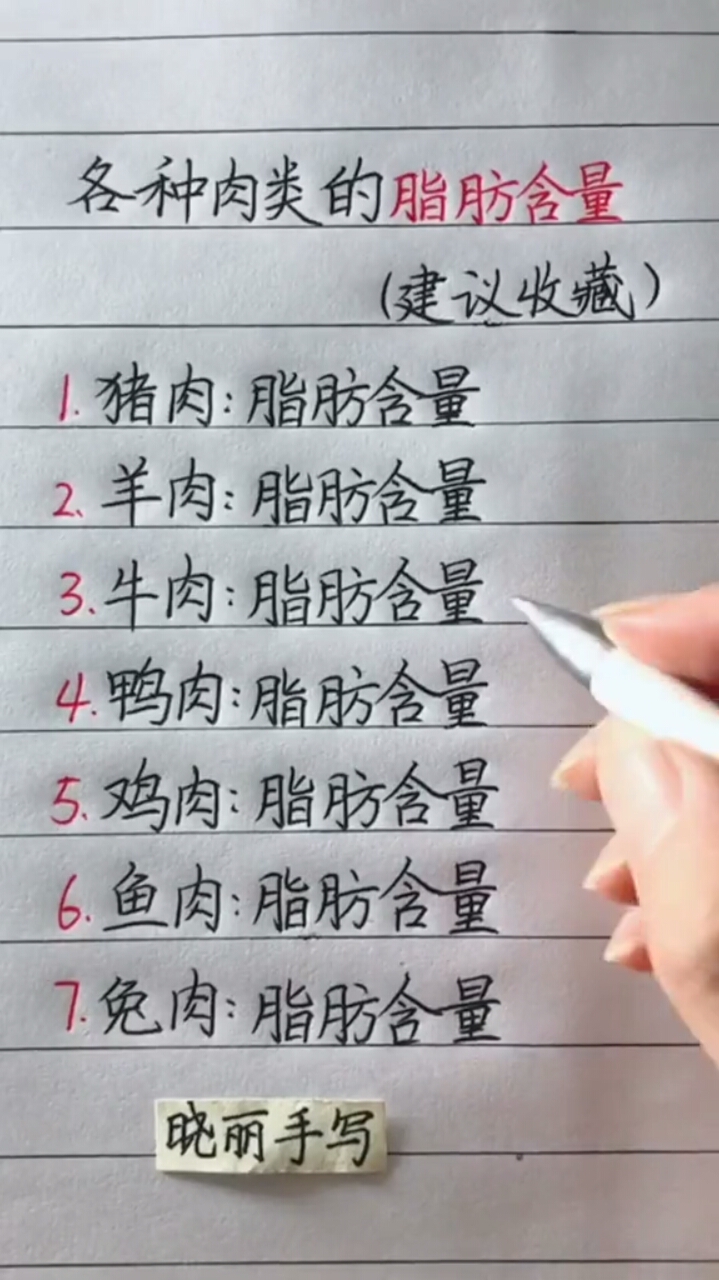 各种肉类的脂肪含量
(建议收藏)
1.猪肉:脂肪含量
2.羊肉:脂肪含量
3.牛肉:脂肪含量
4.鸭肉:脂肪含量
5.鸡肉:脂肪含量
6.鱼肉:脂肪含量
7.兔肉:脂肪含量
晓丽手写